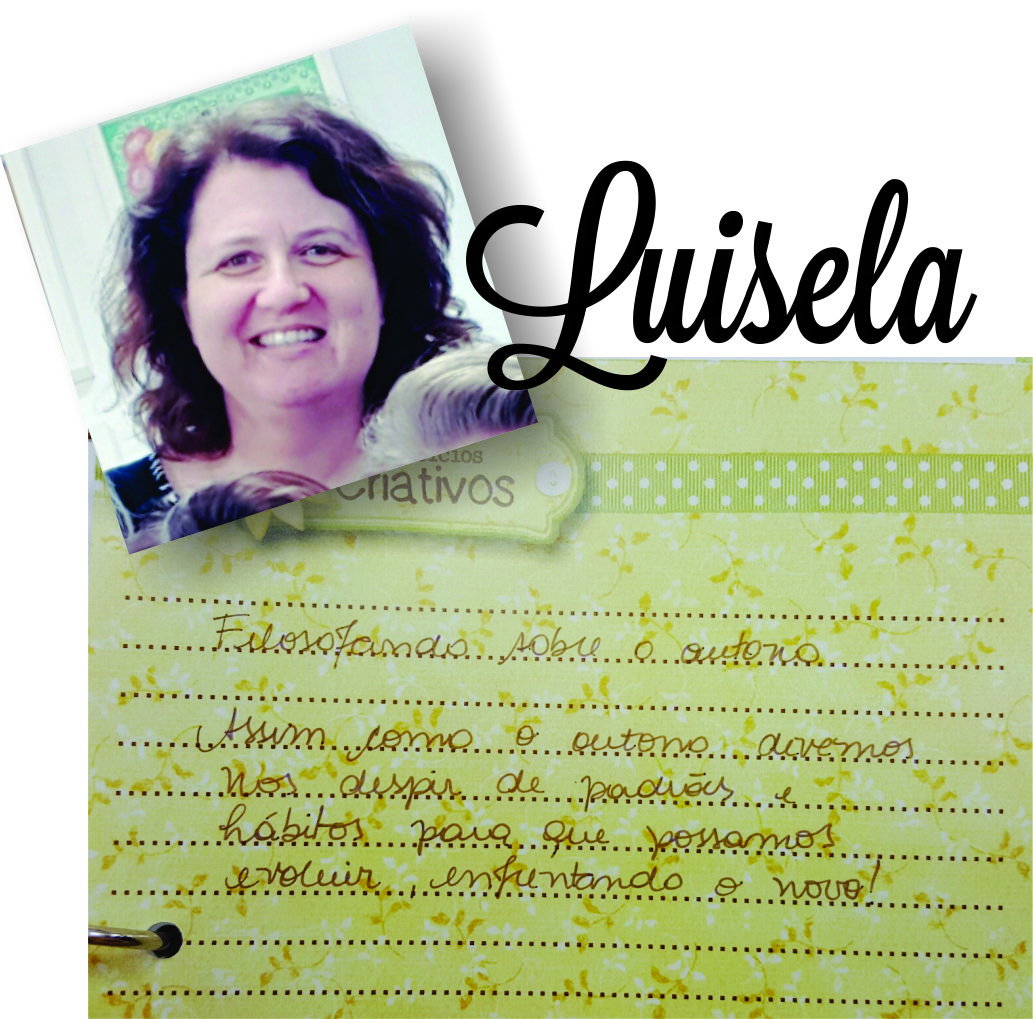 Luisela
Criativos
Filosofando sobre o outono
Assim como o outono devemos
nos despir de padrões e
hábitos para que possamos
evoluir, enfrentando o novo!